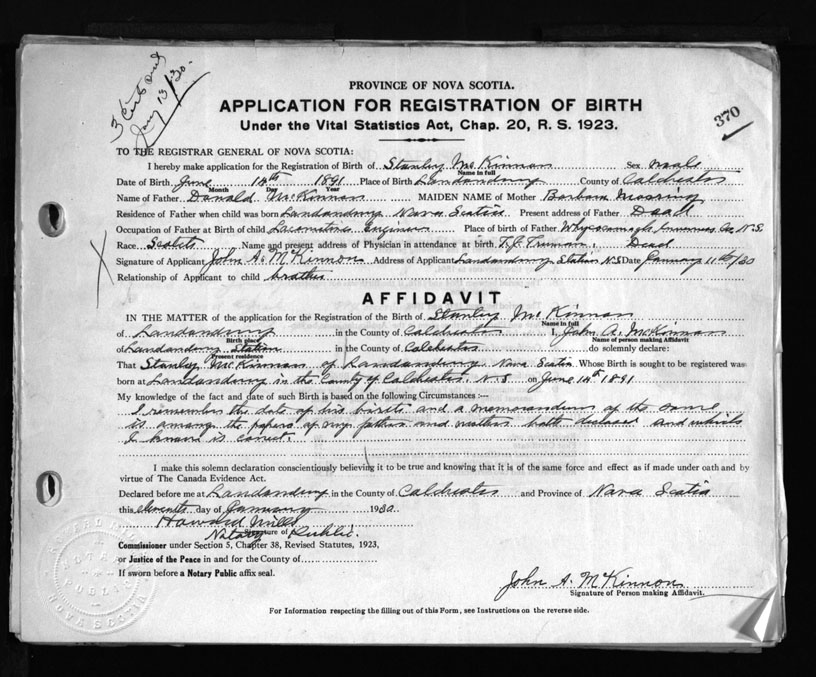 3 Certs
Jany 13/30.
370
PROVINCE OF NOVA SCOTIA.
APPLICATION FOR REGISTRATION OF BIRTH
Under the Vital Statistics Act, Chap. 20, R. S. 1923.
TO THE REGISTRAR GENERAL OF NOVA SCOTIA:
I hereby make application for the Registration of Birth of Stanley McKinnon Sex male
Name in full
Date of Birth June 14th 1891 Place of Birth Londonderry County of Colchester
Month Day Year
Name of Father Donald McKinnon MAIDEN NAME of Mother Barbara
Residence of Father when child was born Londonderry Nova Scotia Present address of Father Dead
Occupation of Father at Birth of child Locomotive Engineer Place of birth of Father Whycocomagh Inverness Co. N.S.
Race Scotch Name and present address of Physician in attendance at birth Dead
Signature of Applicant John A. McKinnon Address of Applicant Londonderry Station N.S Date January 11th/30
Relationship of Applicant to child brother
AFFIDAVIT
IN THE MATTER of the application for the Registration of the Birth of Stanley McKinnon
Name in full
of Londonderry in the County of Colchester I, John A. McKinnon
Birth place Name of person making Affidavit
of Londonderry Station in the County of Colchester do solemnly declare:
Present residence
That Stanley McKinnon of Londonderry Nova Scotia Whose Birth is sought to be registered was
born at Londonderry in the County of Colchester N.S on June 14th 1891
My knowledge of the fact and date of such Birth is based on the following Circumstances :—
I remember the date of his birth and a memorandum of the same
is among the papers of my father and mother both deceased and which
I know is correct.
I make this solemn declaration conscientiously believing it to be true and knowing that it is of the same force and effect as if made under oath and by
virtue of The Canada Evidence Act.
Declared before me at Londonderry in the County of Colchester and Province of Nova Scotia
this eleventh day of January 1930.
Howard Mills
Notary Public.
Signature of
Commissioner under Section 5, Chapter 38, Revised Statutes, 1923,
or Justice of the Peace in and for the County of
If sworn before a Notary Public affix seal.
John A. McKinnon
Signature of Person making Affidavit.
For Information respecting the filling out of this Form, see Instructions on the reverse side.
NOTARY PUBLIC
NOVA SCOTIA